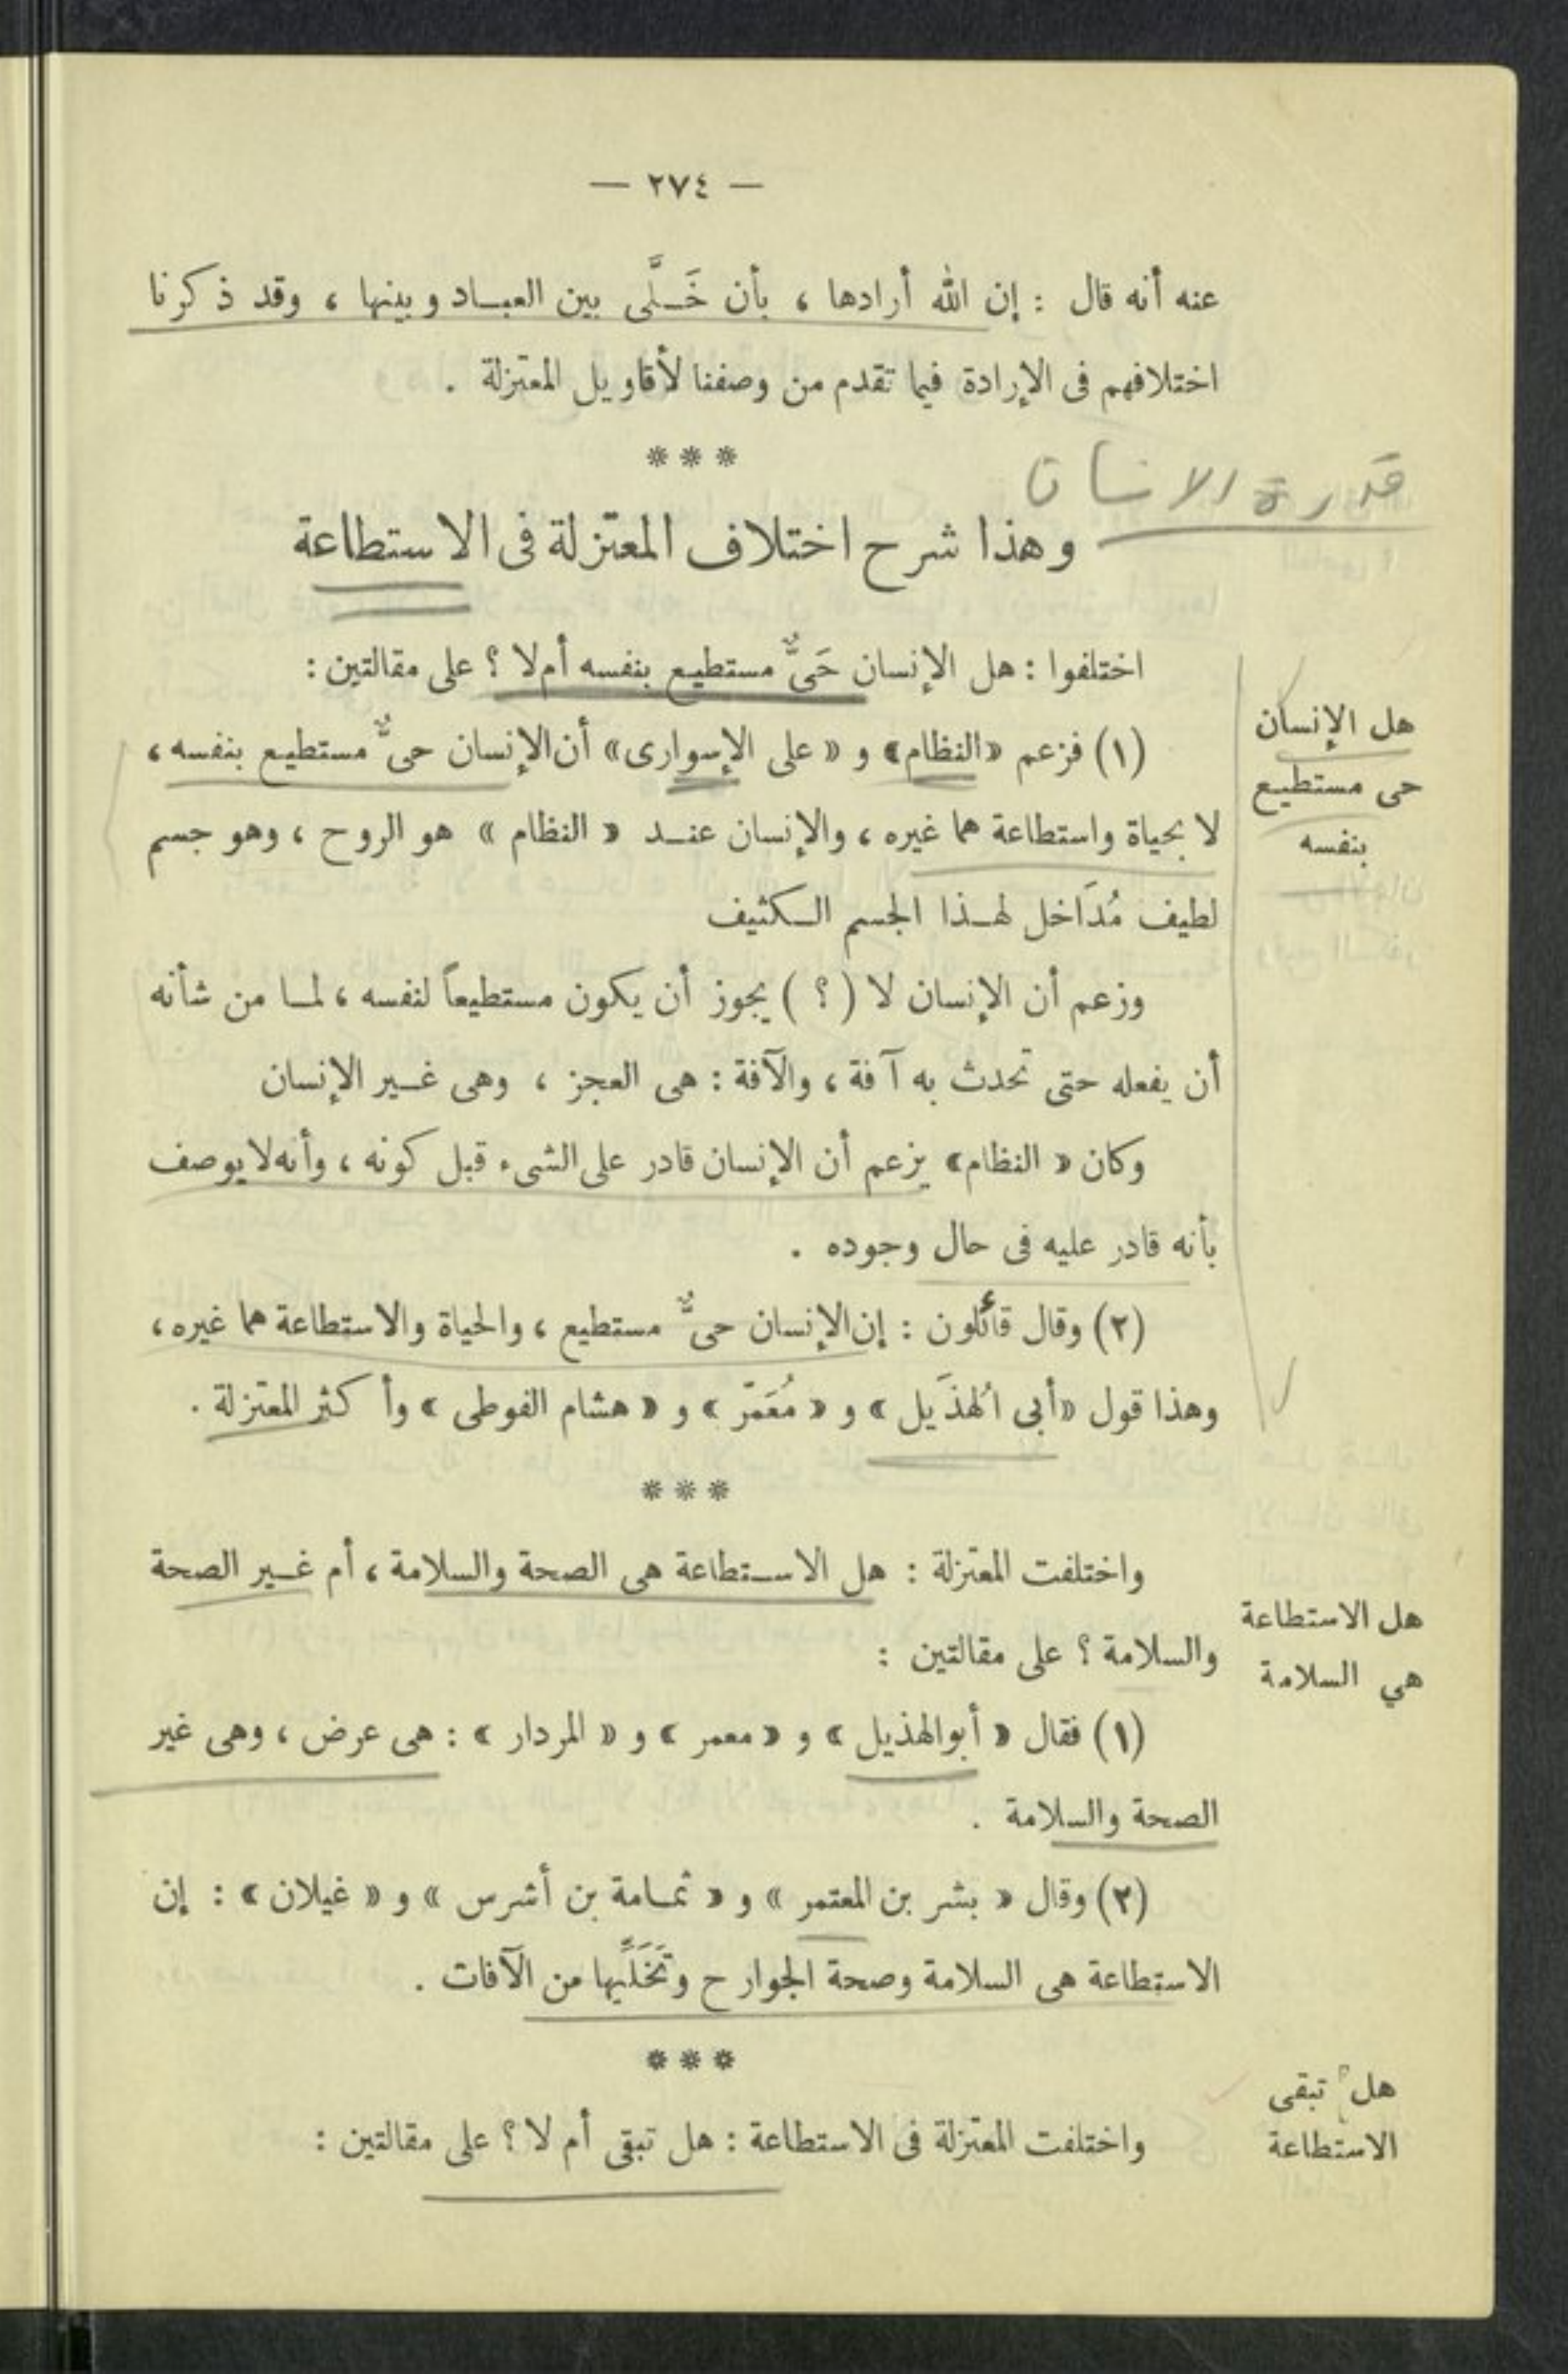 — ٢٧٤ —
عنه أنه قال : إن الله أرادها ، بأن خَلَّى بين العباد وبينها ، وقد ذكرنا
اختلافهم فى الإرادة فيما تقدم من وصفنا لأقاويل المعتزلة .
***
قدرة الانسان
وهذا شرح اختلاف المعتزلة فى الاستطاعة
اختلفوا : هل الإنسان حَىٌّ مستطيع بنفسه أم لا ؟ على مقالتين :
هل الإنسان
حى مستطيع
بنفسه
(١) فزعم «النظام» و « على الإسوارى» أن الإنسان حىٌّ مستطيع بنفسه ،
لا بحياة واستطاعة هما غيره ، والإنسان عند « النظام » هو الروح ، وهو جسم
لطيف مُدَاخل لهذا الجسم الكثيف
وزعم أن الإنسان لا ( ؟ ) يجوز أن يكون مستطيعاً لنفسه ، لما من شأنه
أن يفعله حتى تحدث به آفة ، والآفة : هى العجز ، وهى غير الإنسان
وكان « النظام» يزعم أن الإنسان قادر على الشىء قبل كونه ، وأنه لا يوصف
بأنه قادر عليه فى حال وجوده .
(٢) وقال قائلون : إن الإنسان حىٌّ مستطيع ، والحياة والاستطاعة هما غيره ،
وهذا قول «أبى الهُذَيل » و « مُعَمّر » و « هشام الفوطى » وأكثر المعتزلة .
***
واختلفت المعتزلة : هل الاستطاعة هى الصحة والسلامة ، أم غير الصحة
والسلامة ؟ على مقالتين :
هل الاستطاعة
هي السلامة
(١) فقال « أبو الهذيل » و « معمر » و « المردار » : هى عرض ، وهى غير
الصحة والسلامة .
(٢) وقال « بشر بن المعتمر » و « ثمامة بن أشرس » و « غيلان » : إن
الاستطاعة هى السلامة وصحة الجوارح وتَخَلِّيها من الآفات .
***
هل تبقى
الاستطاعة
واختلفت المعتزلة فى الاستطاعة : هل تبقى أم لا ؟ على مقالتين :